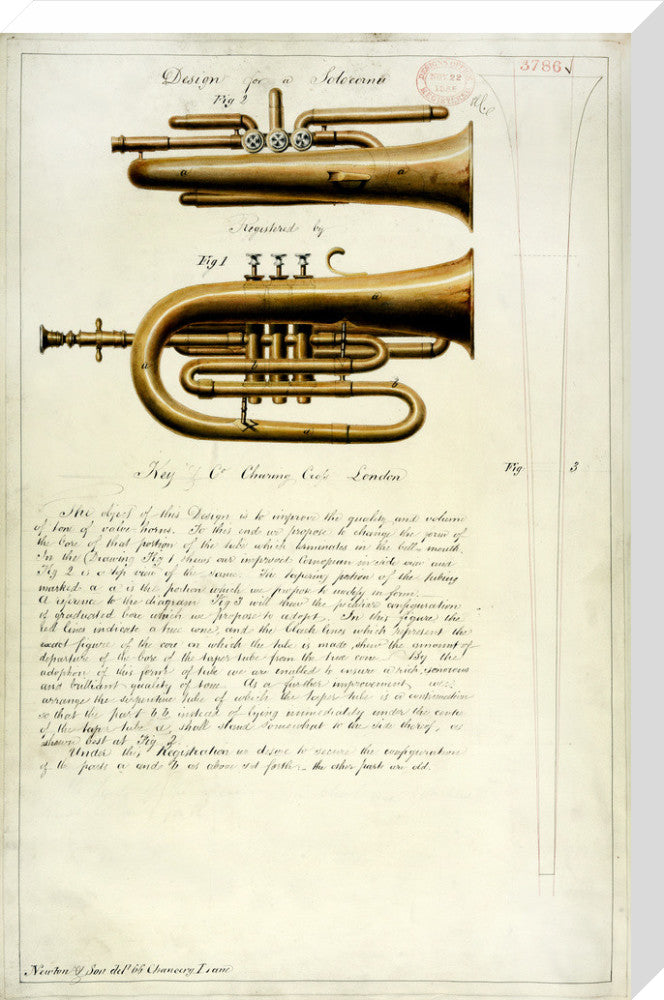 Design for a Solocorno
3786
DESIGNS OFFICE
NOV. 22
REGISTERED
Fig 2
a a
Registered by
Fig 1
a
a
b b
a
Key & Co Charing Cross London
Fig. 3
The object of this Design is to improve the quality and volume
of tone of valve-horns. To this end we propose to change the form of
the bore of that portion of the tube which terminates in the bell-mouth.
In the Drawing Fig 1 shews our improved Cornopean in side view and
Fig 2 is a top view of the same. The tapering portion of the tubing
marked a a is the portion which we propose to modify in form.—
A reference to the diagram Fig 3 will shew the peculiar configuration
of graduated bore which we propose to adopt. In this figure the
red lines indicate a true cone, and the black lines which represent the
exact figure of the core on which the tube is made, shew the amount of
departure of the bore of the taper tube from the true cone. By the
adoption of this form of tube we are enabled to ensure a rich, sonorous
and brilliant quality of tone. As a further improvement, we
arrange the serpentine tube of which the taper tube is a continuation
so that the part b b, instead of lying immediately under the center
of the taper tube a, shall stand somewhat to the side thereof, as
shown best at Fig 2.
Under this Registration we desire to secure the configuration
of the parts a and b as above set forth:— the other parts are old.
Newton & Son delt 66 Chancery Lane